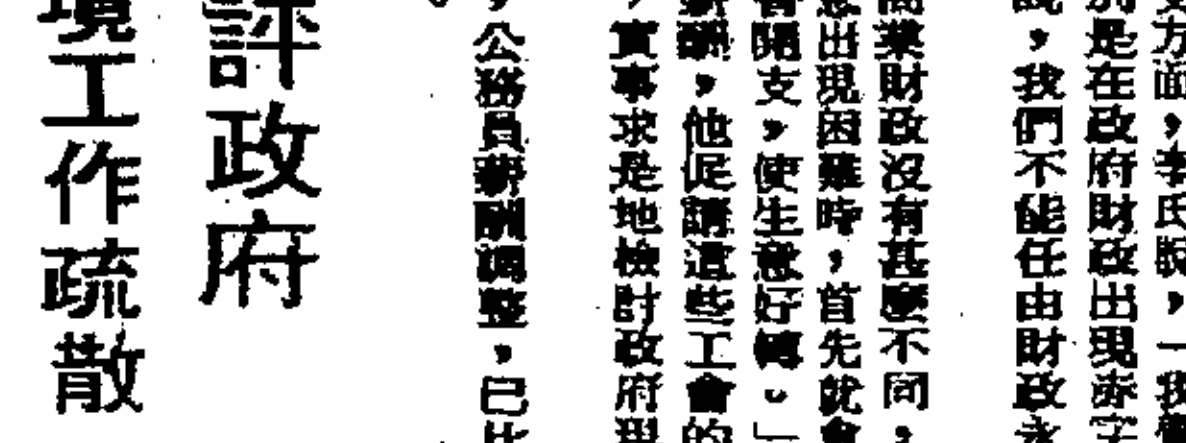 方面，李氏說，
別是在政府財政出現赤字
說，我們不能任由財政永
商業財政沒有甚麼不同，
意出現困難時，首先就會
省開支，使生意好轉。」
薪酬，他促請這些工會的
，實事求是地檢討政府現
，公務員薪酬調整，已比
評政府
境工作疏散